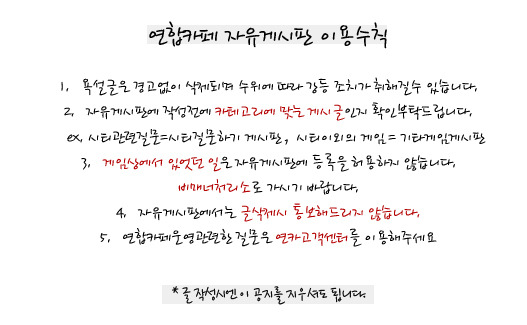 연합카페 자유게시판 이용수칙
1. 욕설글은 경고없이 삭제되며 수위에 따라 강등 조치가 취해질수 있습니다.
2. 자유게시판에 작성전에 카테고리에 맞는 게시글인지 확인부탁드립니다.
ex. 시티관련질문=시티질문하기 게시판, 시티이외의 게임 = 기타게임게시판
3. 게임상에서 있었던 일은 자유게시판에 등록을 허용하지 않습니다.
비매너처리소로 가시기 바랍니다.
4. 자유게시판에서는 글삭제시 통보해드리지 않습니다.
5. 연합카페운영관련한 질문은 연카고객센터를 이용해주세요
* 글 작성시엔 이 공지를 지우셔도 됩니다.